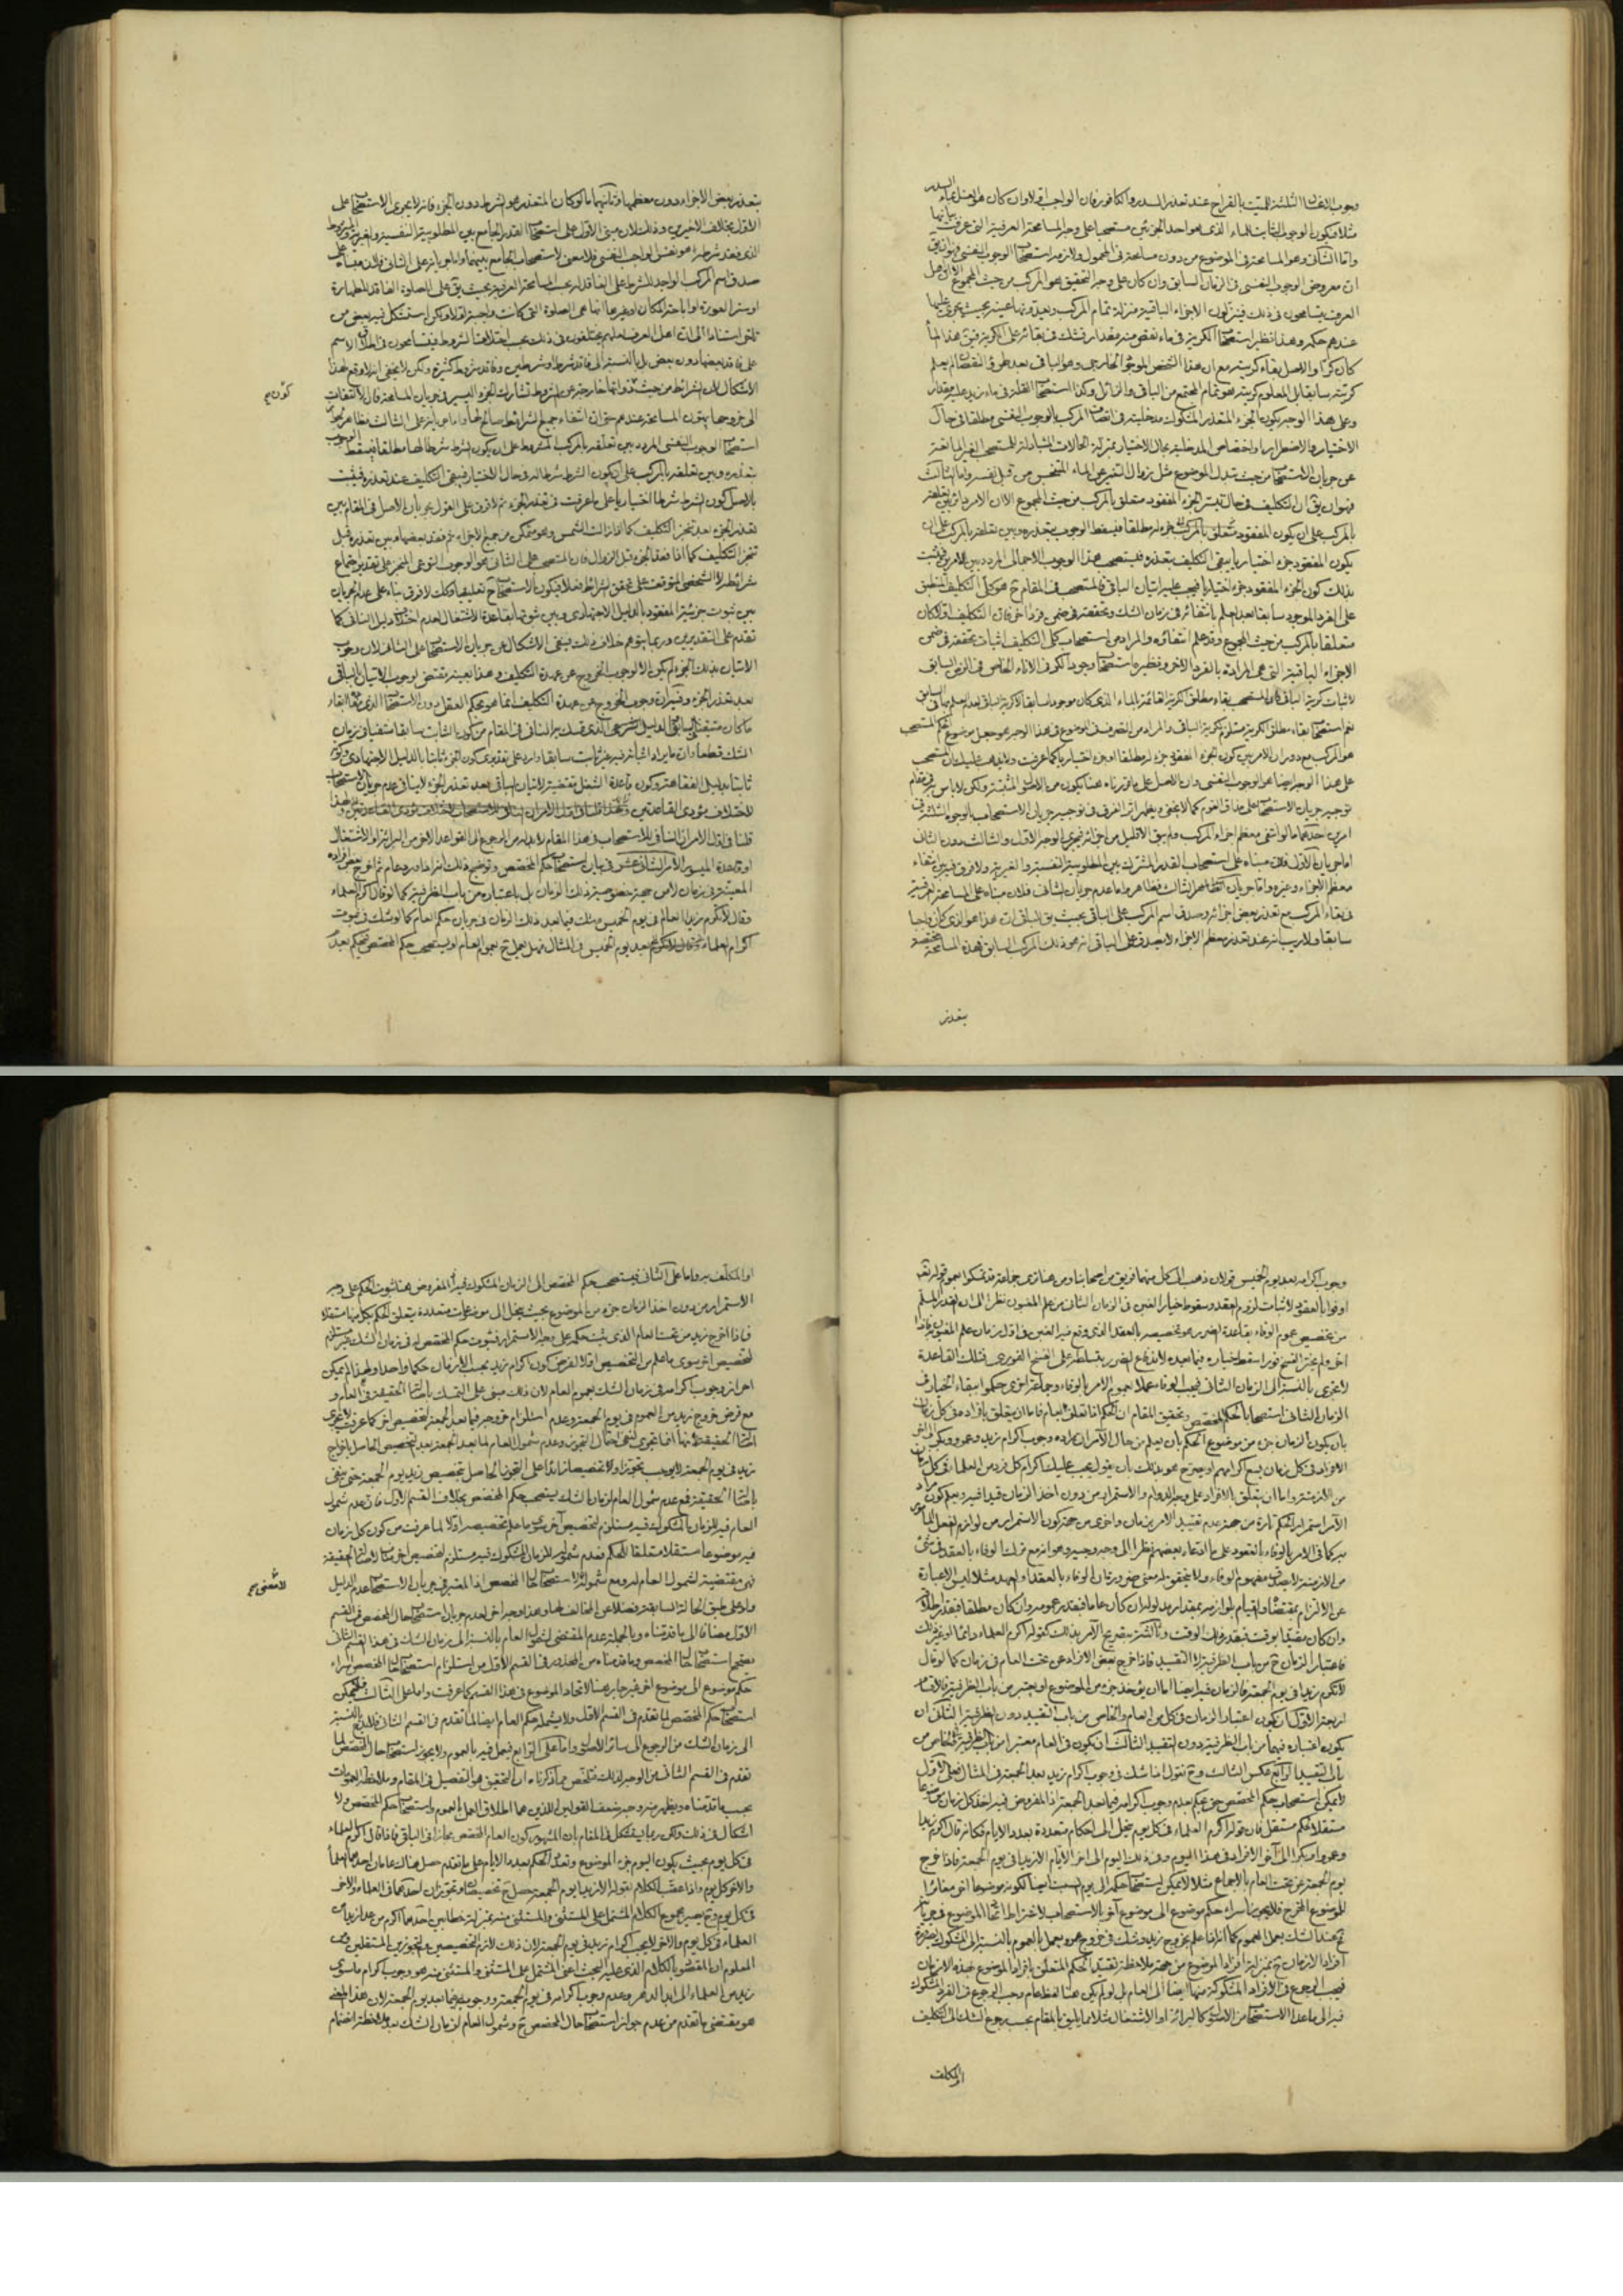 وجوب الغسل الثالث للميت بالقراح عند تعذر السدر والكافور فان الواجب اولا وان كان هو الغسل بماء السدر
مثلا فيكون الوجوب الثابت للماء الذى هو احد الجزئين مستصحبا على وجه المسامحة العرفية التى عرفت بيانها
واما الثانى وهو المسامحة فى الموضوع من دون مسامحة فى المحمول ولازمه استصحاب الوجوب النفسى فبان يق
ان معروض الوجوب النفسى فى الزمان السابق وان كان على وجه التحقيق هو المركب من حيث المجموع الا ان اهل
العرف يتسامحون فى ذلك فينزلون الاجزاء الباقية منزلة تمام المركب ويعدونها عينه بحيث يجرى عليها
عندهم حكمه وهذا نظير استصحاب الكرية فى ماء نقص منه مقدار فشك فى بقائه على الكرية فيق هذا الماء
كان كرا والاصل بقاء كريته مع ان هذا الشخص الموجود الخارجى وهو الباقى بعد طرو النقصان لم يعلم
كريته سابقا بل المعلوم كريته هو تمام المجتمع من الباقى والزائل وكذا استصحاب القلة فى ماء زيد عليه مقدار
وعلى هذا الوجه يكون الجزء المتعذر المشكوك مدخليته فى اتصاف المركب بالوجوب النفسى مطلقا فى حال
الاختيار والاضطرار او اختصاص المدخلية بحال الاختيار بمنزلة الحالات المتبادلة للمستصحب الغير المانعة
عن جريان الاستصحاب من حيث تبدل الموضوع مثل زوال التغير عن الماء المتنجس من قبل نفسه واما الثالث
فهو ان يق ان التكليف فى حال تيسر الجزء المفقود متعلق بالمركب من حيث المجموع الا ان الامر دائر بين تعلقه
بالمركب على ان يكون المفقود جزء له مطلقا فيسقط الوجوب بتعذره وبين تعلقه بالمركب على ان
يكون المفقود جزء اختياريا يبقى التكليف بتعذره فيستصحب هذا الوجوب الاجمالى المردد بين الامرين فيثبت
بذلك كون الجزء المفقود جزء اختياريا فيجب عليه اتيان الباقى فالمستصحب فى المقام ح هو كلى التكليف المنطبق
على الفرد الموجود سابقا بعد العلم بانتفائه فى زمان الشك وتحققه فى ضمن فرد اخر فان التكليف اولا كان
متعلقا بالمركب من حيث المجموع وقد علم انتفاؤه والمراد من استصحاب كلى التكليف اثبات تحققه فى ضمن
الاجزاء الباقية التى هى المرادة بالفرد الاخر ونظيره استصحاب وجود الكر فى الاناء الخاص فى الزمن السابق
لاثبات كرية الباقى فان المستصحب بقاء مطلق الكرية القائمة بالماء الذى كان موجودا سابقا لا كرية الباقى لعدم العلم بها فى السابق
هو المركب مع دوران الامر بين كون الجزء المفقود جزء له مطلقا او جزء اختياريا كما عرفت ولا يذهب عليك ان المستصحب
على هذا الوجه ايضا هو الوجوب النفسى
توجيه جريان الاستصحاب على مذاق القوم كما لا يخفى ويظهر اثر الفرق فى توجيه جريان الاستصحاب بالوجوه الثلثة فى
امرين احدهما ما لو انتفى معظم اجزاء المركب ولم يبق الا قليل من اجزائه فيجرى الوجه الاول والثالث دون الثانى
اما جريان الاول فلان مبناه على استصحاب القدر المشترك بين المطلوبية النفسية والغيرية ولا فرق فيه بين بقاء
معظم الاجزاء وغيره واما جريان الثالث فظاهر واما عدم جريان الثانى فلان مبناه على المسامحة العرفية
فى بقاء المركب مع تعذر بعض اجزائه وصدق اسم المركب على الباقى بحيث يق للباقى ان هذا هو الذى كان واجبا
سابقا ولا ريب انه عند تعذر معظم الاجزاء لا يصدق على الباقى انه هو ذلك المركب السابق فهذه المسامحة مختصة
بتعذر
بتعذر بعض الاجزاء دون معظمها وثانيهما ما لو كان المتعذر هو الشرط دون الجزء فانه لا يجرى الاستصحاب على
الاول بخلاف الاخيرين وذلك لان مبنى الاول على استصحاب القدر الجامع بين المطلوبية النفسية والغيرية والمشروط
الذى فقد شرطه هو نفس الواجب النفسى فلا معنى لاستصحاب الجامع بينهما واما جريانه على الثانى فلان مبناه على
صدق اسم المركب الواجد للشرط على الفاقد له بحسب المسامحة العرفية بحيث يق على الصلوة الفاقدة للطهارة
او ستر العورة او اباحة المكان او غيرها انها هى الصلوة التى كانت واجبة اولا ولكن استشكل فيه بعض من
على فاقد بعضها دون بعض بل بالنسبة الى فاقد شرط او شرطين وفاقد شروط كثيرة ولكن لا يخفى انه لا وقع لهذا
الى خروجها يتون المسامحة عندهم حتى ان انتفاء جميع الشرائط صالح لها واما جريانه على الثالث فظاهر
استصحاب الوجوب النفسى المردد بين تعلقه بالمركب المشروط على ان يكون الشرط شرطا لها مطلقا فيسقط الوجوب
بتعذره وبين تعلقه بالمركب على ان يكون الشرط شرطا له فى حال الاختيار فيبقى التكليف عند تعذره فيثبت
بالاصل كون الشرط شرطا اختياريا على ما عرفت فى تعذر الجزء ثم لا فرق على القول بجريان الاصل فى المقام بين
تعذر الجزء بعد تنجز التكليف كما اذا زالت الشمس وهو متمكن من جميع الاجزاء ثم فقد بعضها وبين تعذره قبل
تنجز التكليف كما اذا فقد الجزء قبل الزوال فان المستصحب على الثانى هو الوجوب النوعى المنجز على تقدير اجتماع
شرائطه لا الشخصى المتوقف على تحقق الشرائط فعلا فيكون الاستصحاب ح تعليقيا وكذلك لا فرق بناء على عدم الجريان
بين ثبوت جزئية المفقود بالدليل الاجتهادى وبين ثبوتها بقاعدة الاشتغال
تقدم على التقديرين وربما يتوهم خلاف ذلك بنفى الاشكال عن جريان الاستصحاب على الثانى لان وجوب
الاتيان بذلك الجزء لم يكن الا لوجوب الخروج عن عهدة التكليف وهذا بعينه مقتض لوجوب الاتيان بالباقى
بعد تعذر الجزء وفيه ان وجوب الخروج عن عهدة التكليف انما هو بحكم العقل دون الاستصحاب
ثابتا بدليل الفقاهة وكون قاعدة الشغل مقتضية للاتيان بالباقى بعد تعذر الجزء لا ينافى عدم جريان الاستصحاب
قلنا فى اول الامر ان المنافى للاستصحاب فى هذا المقام لا بد له من الرجوع الى القواعد الاخر من البرائة او الاشتغال
او قاعدة الميسور الامر الثانى عشر فى بيان استصحاب حكم المخصص وتوضيح ذلك انه اذا ورد عام ثم خرج بعض افراده
المعينة فى زمان لا من جهة خصوصية ذلك الزمان بل باعتباره من باب الظرفية كما لو قال اكرم العلماء
وقال لا تكرم زيدا العالم فى يوم الخميس فشك فيما بعد ذلك الزمان فى جريان حكم العام كما لو شك فى ثبوت
اكرام العلماء بعد يوم الخميس فى المثال فهل يعمل ح بعموم العام او يستصحب حكم المخصص فيحكم بعدم
وجوب اكرامه بعد يوم الخميس قولان ذهب الى كل منهما فريق من اصحابنا ومن هنا ترى جماعة قد تمسكوا بعموم قوله تعالى
اوفوا بالعقود لاثبات لزوم العقد وسقوط خيار الغبن فى الزمان الثانى من علم المغبون نظرا الى ان القدر المسلم
من تخصيص عموم الوفاء بقاعدة الضرر هو تخصيصه بالعقد الذى وقع فيه الغبن فى اول زمان علم المغبون فاذا
اخر ولم يختر الفسخ فورا سقط خياره فيما بعده لاندفاع الضرر بتسلطه على الفسخ الفورى فتلك القاعدة
لا تجرى بالنسبة الى الزمان الثانى فيجب الوفاء عملا بعموم الامر بالوفاء وجماعة اخرى حكموا ببقاء الخيار فى
الزمان الثانى استصحابا لحكم المخصص وتحقيق المقام ان الحكم اذا تعلق بالعام فاما ان يتعلق بافراده فى كل زمان
بان يكون الزمان جزء من موضوع الحكم بان يعلم من حال الآمر ان مراده وجوب اكرام زيد وعمرو وبكر الى اخر
الافراد فى كل زمان يسع اكرامهم او يصرح هو بذلك بان يقول يجب عليك اكرام كل فرد من العلماء فى كل زمان
من الازمنة واما ان يتعلق بالافراد على وجه الدوام والاستمرار من دون اخذ الزمان قيدا فيه
الآمر استمرار الحكم تارة من جهة عدم تقييد الامر بزمان واخرى من جهة كون الاستمرار من لوازم الفعل المأمور
به كما فى الامر بالوفاء بالعقود على ما ادعاه بعضهم نظرا الى
من الازمنة لا يصدق مفهوم الوفاء ولا يتحقق له معنى ضرورة ان الوفاء بالعقد او العهد مثلا ليس الا عبارة
عن الالتزام بمقتضاه والقيام بلوازمه بمقدار مدلوله ان كان عاما فبقدر عمومه وان كان مطلقا فبقدر اطلاقه
وان كان مقيدا بوقت فبقدر ذلك الوقت وثالثة بتصريح الآمر بذلك كقوله اكرم العلماء دائما او غير ذلك
فاعتبار الزمان ح من باب الظرفية لا التقييد فاذا خرج بعض الافراد عن تحت العام فى زمان كما لو قال
لا تكرم زيدا فى يوم الجمعة فالزمان فيه ايضا اما ان يؤخذ جزء من الموضوع او يعتبر من باب الظرفية فالاقسام
اربعة الاول ان يكون اعتبار الزمان فى كل من العام والخاص من باب التقييد دون الظرفية الثانى ان
يكون اعتباره فيهما من باب الظرفية دون التقييد الثالث ان يكون فى العام معتبرا من باب الظرفية وفى الخاص من
باب التقييد الرابع عكس الثالث وح نقول اذا شك فى وجوب اكرام زيد بعد الجمعة فى المثال فعلى الاول
لا يمكن استصحاب حكم المخصص حتى يحكم بعدم وجوب اكرامه فيما بعد الجمعة اذ المفروض فيه اخذ كل زمان موضوعا
مستقلا لحكم مستقل فان قوله اكرم العلماء فى كل يوم ينحل الى احكام متعددة بعدد الايام فكانه قال اكرم زيدا
وعمروا وبكرا الى آخر الافراد فى هذا اليوم وفى ذلك اليوم الى اخر الايام الا زيدا فى يوم الجمعة فاذا خرج
يوم الجمعة عن تحت العام بالاجماع مثلا لا يمكن استصحاب حكمه الى يوم السبت ايضا لكونه موضوعا اخر مغائرا
للموضوع المخرج فلا يجوز اسراء حكم موضوع الى موضوع آخر بالاستصحاب لاشتراط اتحاد الموضوع فى جريانه
ح عند الشك بعمل العموم كما اذا علم بخروج زيد وشك فى خروج عمرو يعمل بالعموم بالنسبة الى المشكوك
افراد الازمان ح بمنزلة افراد الموضوع من جهة ملاحظة تقييد الحكم المتعلق بافراد الموضوع بهذه الازمان
فيجب الرجوع فى الافراد المشكوكة منها ايضا الى العام بل لو لم يكن هنا لفظ عام وجب الرجوع فى الفرد المشكوك
فيه الى ما عدا الاستصحاب من الاصول كالبرائة او الاشتغال مثلا مما يليق بالمقام بحسب رجوع الشك الى التكليف
او المكلف
او المكلف به واما على الثانى فيستصحب حكم المخصص الى الزمان المشكوك فيه اذ المفروض هنا ثبوت الحكم على وجه
الاستمرار من دون اخذ الزمان جزء من الموضوع بحيث ينحل الى موضوعات متعددة يتعلق الحكم بكل منها مستقلا
فاذا خرج زيد من تحت العام الذى ثبت حكمه على وجه الاستمرار فثبوت حكم المخصص له فى زمان الشك غير مستلزم
لتخصيص اخر سوى ما علم من التخصيص اولا
احراز وجوب اكرامه فى زمان الشك بعموم العام لان ذلك مبنى على التمسك باصالة الحقيقة فى العام و
مع فرض خروج زيد من العموم فى يوم الجمعة وعدم استلزام خروجه فيما بعد الجمعة لتخصيص اخر كما عرفت لا تجرى
اصالة الحقيقة فانها انما تجرى لنفى احتمال التجوز وعدم شمول العام لما بعد الجمعة بعد التخصيص الحاصل باخراج
زيد فى يوم الجمعة لا يوجب تجوزا ولا تخصيصا زائدا على التجوز الحاصل بتخصيص زيد يوم الجمعة حتى ينفى
باصالة الحقيقة فمع عدم شمول العام لزمان الشك يستصحب حكم المخصص بخلاف القسم الاول فان عدم شمول
العام فيه للزمان المشكوك فيه مستلزم لتخصيص آخر سوى ما علم تخصيصه اولا لما عرفت من كون كل زمان
فيه موضوعا مستقلا متعلقا للحكم فعدم شموله للزمان المشكوك فيه مستلزم لتخصيص اخر
فهى مقتضية لشمول العام له ومع شموله له لا استصحاب لحال المخصص اذ المعتبر فى جريان الاستصحاب عدم الدليل
ولو على طبق الحالة السابقة فضلا عن المخالف لها وهذا وجه اخر لعدم جريان استصحاب حال المخصص فى القسم
الاول مضافا الى ما قدمناه وبالجملة عدم المقتضى لشمول العام بالنسبة الى زمان الشك فى هذا القسم الثانى
يصحح استصحاب حال المخصص وما قدمناه من المحذور فى القسم الاول من استلزام استصحاب حال المخصص اسراء
حكم موضوع الى موضوع اخر غير جار هنا لاتحاد الموضوع فى هذا القسم كما عرفت واما على الثالث فلا يمكن
استصحاب حكم المخصص لما تقدم فى القسم الاول ولا يشمله حكم العام ايضا لما تقدم فى القسم الثانى فلا بد بالنسبة
الى زمان الشك من الرجوع الى سائر الاصول واما على الرابع فيعمل فيه بالعموم ولا يجوز استصحاب حال المخصص لما
تقدم فى القسم الثانى من الوجه لذلك فتلخص مما ذكرناه ان التحقيق هو التفصيل فى المقام وملاحظة العمومات
بحسب ما قدمناه ويظهر منه وجه ضعف القولين اللذين هما اطلاق العمل بالعموم واستصحاب حكم المخصص ولا
اشكال فى ذلك ولكن ربما يستشكل فى المقام بان المشهور كون العام المخصص مجازا فى الباقى فاذا قال اكرم العلماء
فى كل يوم بحيث يكون اليوم جزء الموضوع وتعدد الحكم بعدد الايام على ما تقدم حصل هناك عامان احدهما العلماء
والاخر كل يوم واذا عقب الكلام بقوله الا زيدا يوم الجمعة حصل ح تخصيصان وتجوزان احدهما فى العلماء والاخر
فى كل يوم وح يصير مجموع الكلام المشتمل على المستثنى والمستثنى منه بمنزلة خطابين احدهما اكرم من عدا زيد من
العلماء فى كل يوم والاخر لا يجب اكرام زيد فى يوم الجمعة لان ذلك لازم التخصيصين والتجوزين المستقلين ومن
المعلوم ان المقصود بالكلام الذى عليه البحث اعنى المشتمل على المستثنى والمستثنى منه هو وجوب اكرام ما سوى
زيد من العلماء الى ابد الدهر وعدم وجوب اكرامه فى يوم الجمعة ووجوبه فيما بعد يوم الجمعة لان هذا المعنى
هو مقتضى ما تقدم من عدم جواز استصحاب حال المخصص ح وشمول العام لزمان الشك بعد ملاحظة انضمام